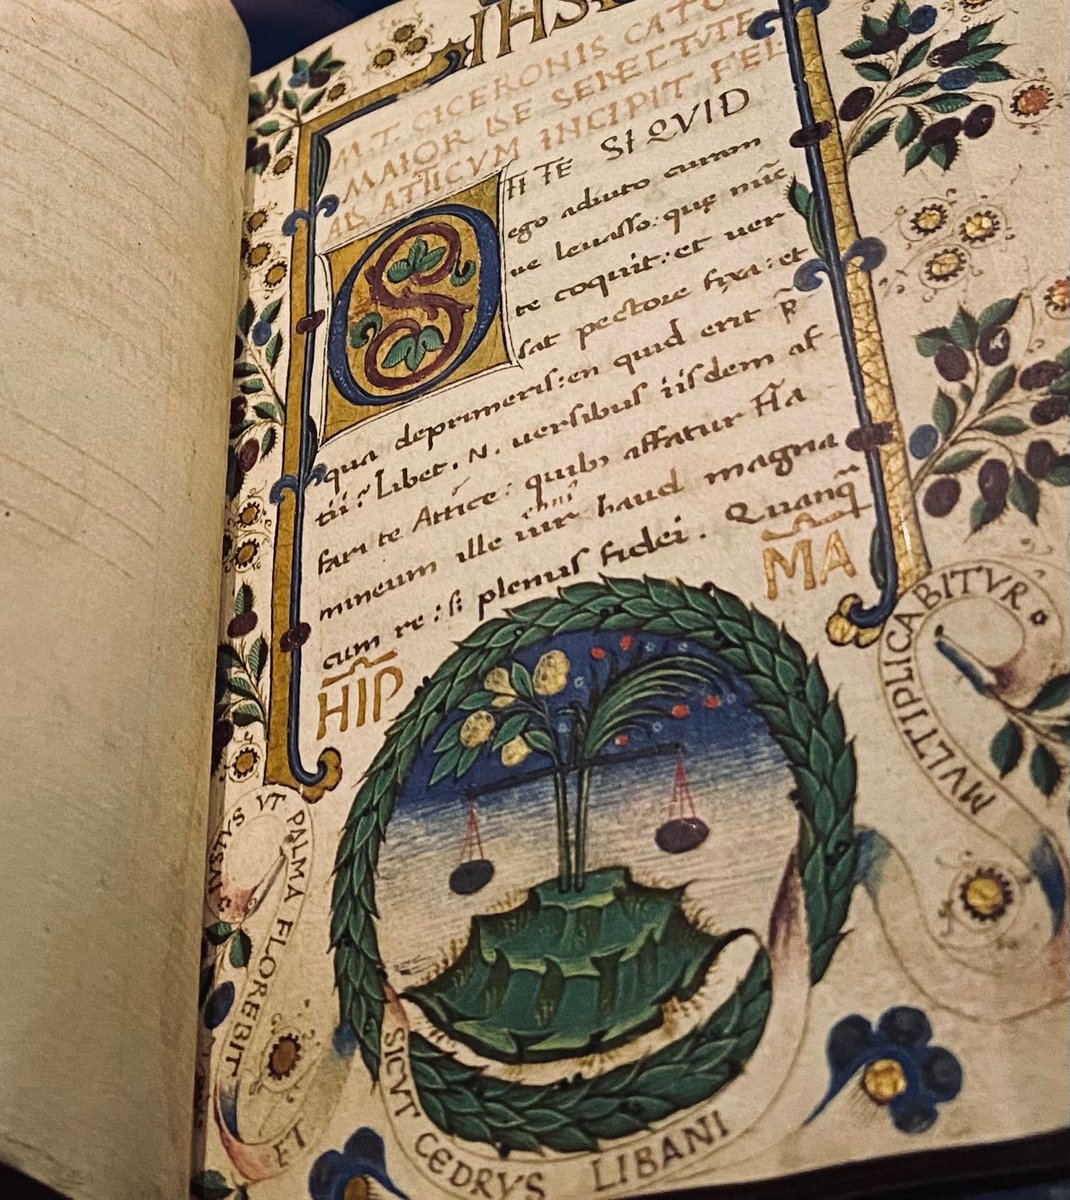 IHS
M. T. CICERONIS CATO
MAIOR DE SENECTVTE
AD ATTICVM INCIPIT FEL:
O TE SI QVID
ego adiuto curam
ue leuasso: quę nūc
te coquit: et uer
sat pectore fixa: et
qua deprimeris: en quid erit p̄
tii? Libet . N . uersibus iisdem af
fari te Attice: quib; affatur Fla
mineum ille uir haud magna
cum re: s; plenus fidei . Quanq̄
HIP MA
IVSTVS VT PALMA FLOREBIT ET
SICVT CEDRVS LIBANI
MVLTIPLICABITVR